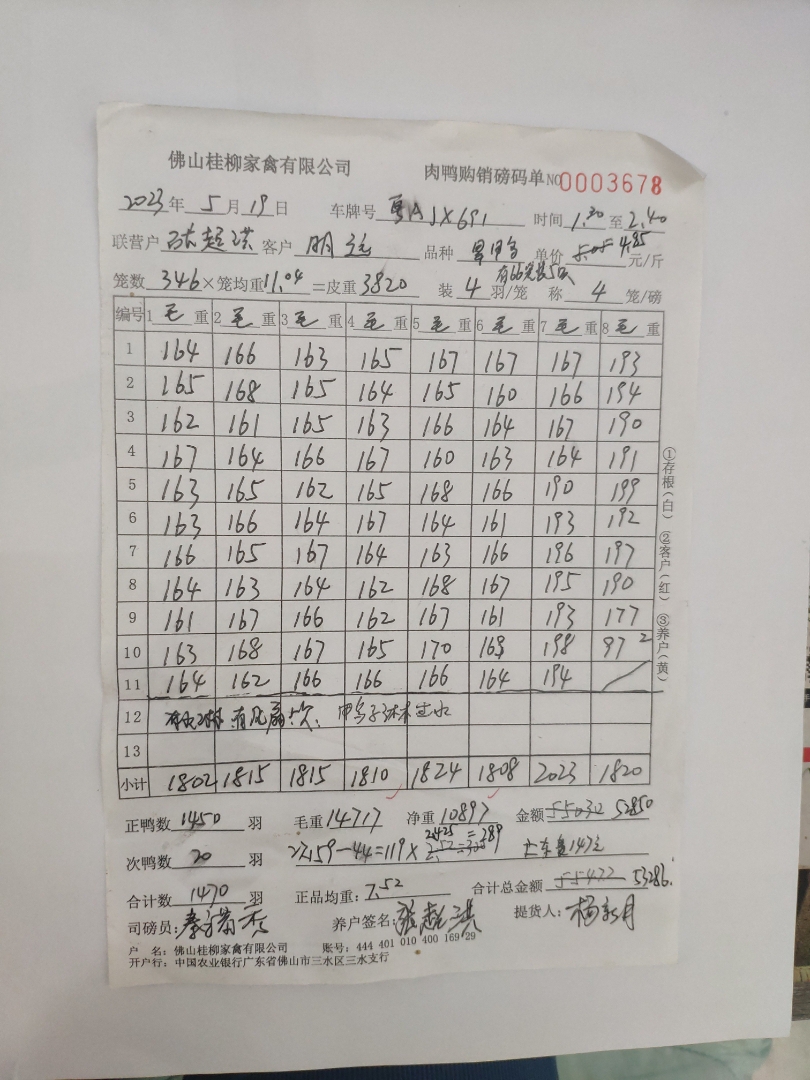 佛山桂柳家禽有限公司 肉鸭购销磅码单 NO 0003678
2023年 5月 19日 车牌号 粤AJX691 时间 1.30 至 2.40
联营户 张超洪 客户 明 品种 单价 5.05 4.85 元/斤
笼数 346 ×笼均重 11.04 =皮重 3820 装 4 羽/笼 称 4 笼/磅
编号 1 毛 重 2 毛 重 3 毛 重 4 毛 重 5 毛 重 6 毛 重 7 毛 重 8 毛 重
1 164 166 163 165 167 167 167 193
2 165 168 165 164 165 160 166 194
3 162 161 165 163 166 164 167 190
4 167 164 166 167 160 163 164 191
5 163 165 162 165 168 166 190 199
6 163 166 164 167 164 161 193 192
7 166 165 167 164 163 166 196 197
8 164 163 164 162 168 167 195 190
9 161 167 166 162 167 161 193 177
10 163 168 167 165 170 169 198 97 2
11 164 162 166 166 166 164 194
12
13
小计 1802 1815 1815 1810 1824 1808 2023 1820
①存根(白) ②客户(红) ③养户(黄)
正鸭数 1450 羽 毛重 14717 净重 10897 金额 55032 52850
次鸭数 20 羽 27.159-44=119×
合计数 1470 羽 正品均重: 7.52 合计总金额 55422 53286.
司磅员: 养户签名: 张超洪 提货人: 杨新月
户 名: 佛山桂柳家禽有限公司 账号: 444 401 010 400 169 29
开户行: 中国农业银行广东省佛山市三水区三水支行